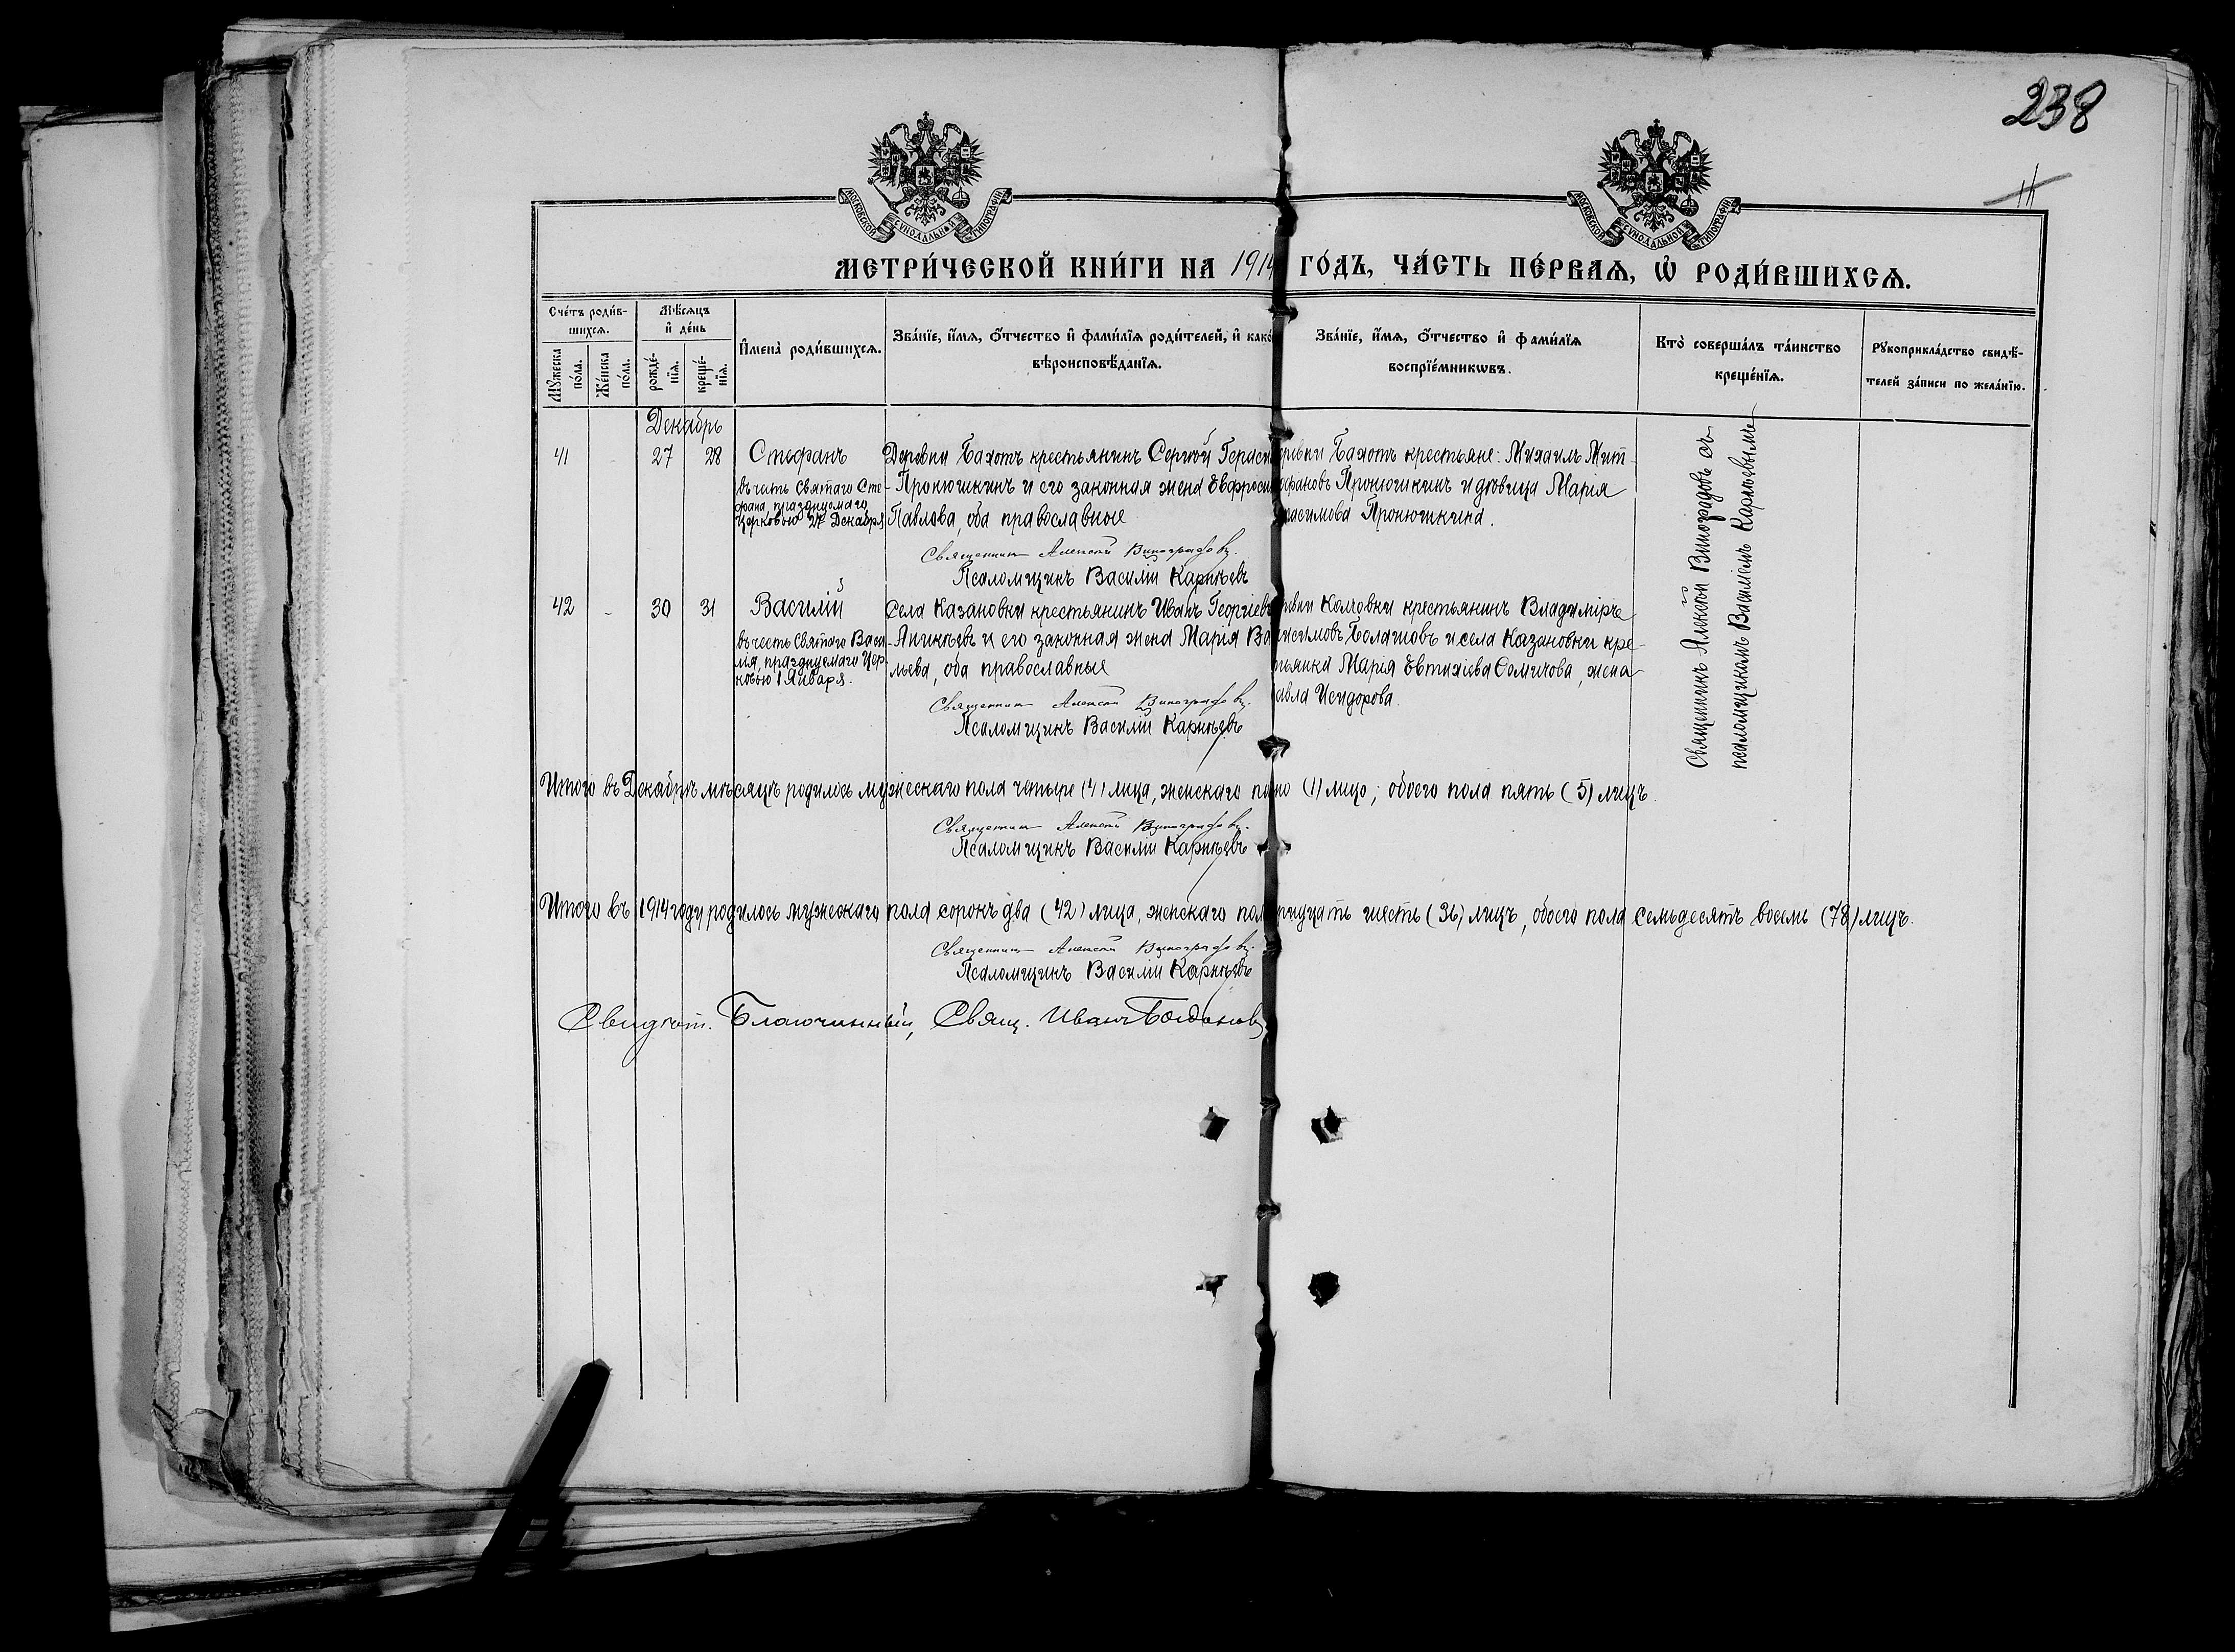 238
11
МОСКОВСКОЙ СѴНОДАЛЬНОЙ ТИПОГРАФІИ
МОСКОВСКОЙ СѴНОДАЛЬНОЙ ТИПОГРАФІИ
МЕТРИ́ЧЕСКОЙ КНИ́ГИ НА 1914 ГО́ДЪ, ЧА́СТЬ ПЕ́РВАѦ, Ѡ҆ РОДИ́ВШИХСѦ.
Сче́тъ роди́в-
шихсѧ.
Мꙋ́жеска по́ла.
Же́нска по́ла.
Мѣ́сѧцъ
и҆ де́нь
рожде́-
нїѧ.
креще́-
нїѧ.
И҆мена̀ роди́вшихсѧ.
Зва́нїе, и҆́мѧ, ѻ҆́тчество и҆ фами́лїѧ роди́телей, и҆ како́
вѣроисповѣ́данїѧ.
Зва́нїе, и҆́мѧ, ѻ҆́тчество и҆ фами́лїѧ
воспрїе́мникѡвъ.
Кто̀ соверша́лъ та́инство
креще́нїѧ.
Рꙋкоприкла́дство свидѣ́-
телей за́писи по жела́нїю.
Декабрь
41 - 27 28 Стефанъ
въ честь святаго Сте-
фана, празднуемаго
Церковью 27 Декабря
Деревни Бахотъ крестьянинъ Сергѣй Гераси
Пронюшкинъ и его законная жена Евфроси
Павлова, оба православные
Священникъ Алексѣй Виноградовъ.
Псаломщикъ Василій Карнѣевъ
ревни Бахотъ крестьяне: Михаилъ Мит-
офановъ Пронюшкинъ и дѣвица Мария
расимова Пронюшкина.
42 - 30 31 Василій
въ честь святаго Васи-
лія, празднуемаго Цер-
ковью 1 Января.
Села Казановки крестьянинъ Иванъ Георгіев
Аникѣевъ и его законная жена Марія Ва
льева, оба православные
Священникъ Алексѣй Виноградовъ.
Псаломщикъ Василій Карнѣевъ
ревни Колчовки крестьянинъ Владиміръ
Болашовъ и села Казановки кре-
тьянка Марія Евтихіева Семичова, жена
авла Исидорова.
Священникъ Алексѣй Виноградовъ съ
псаломщикомъ Василіемъ Карнѣевымъ
Итого въ Декабрѣ мѣсяцѣ родилось мужескаго пола четыре (4) лица, женскаго п но (1) лицо; обоего пола пять (5) лицъ.
Священникъ Алексѣй Виноградовъ.
Псаломщикъ Василій Карнѣевъ
Итого въ 1914 году родилось мужескаго пола сорокъ два (42) лица, женскаго пол ридцать шесть (36) лицъ, обоего пола семьдесятъ восемь (78) лицъ.
Священникъ Алексѣй Виноградовъ.
Псаломщикъ Василій Карнѣевъ
Свидѣт. Благочинный, Свящ. Иванъ Богдановъ